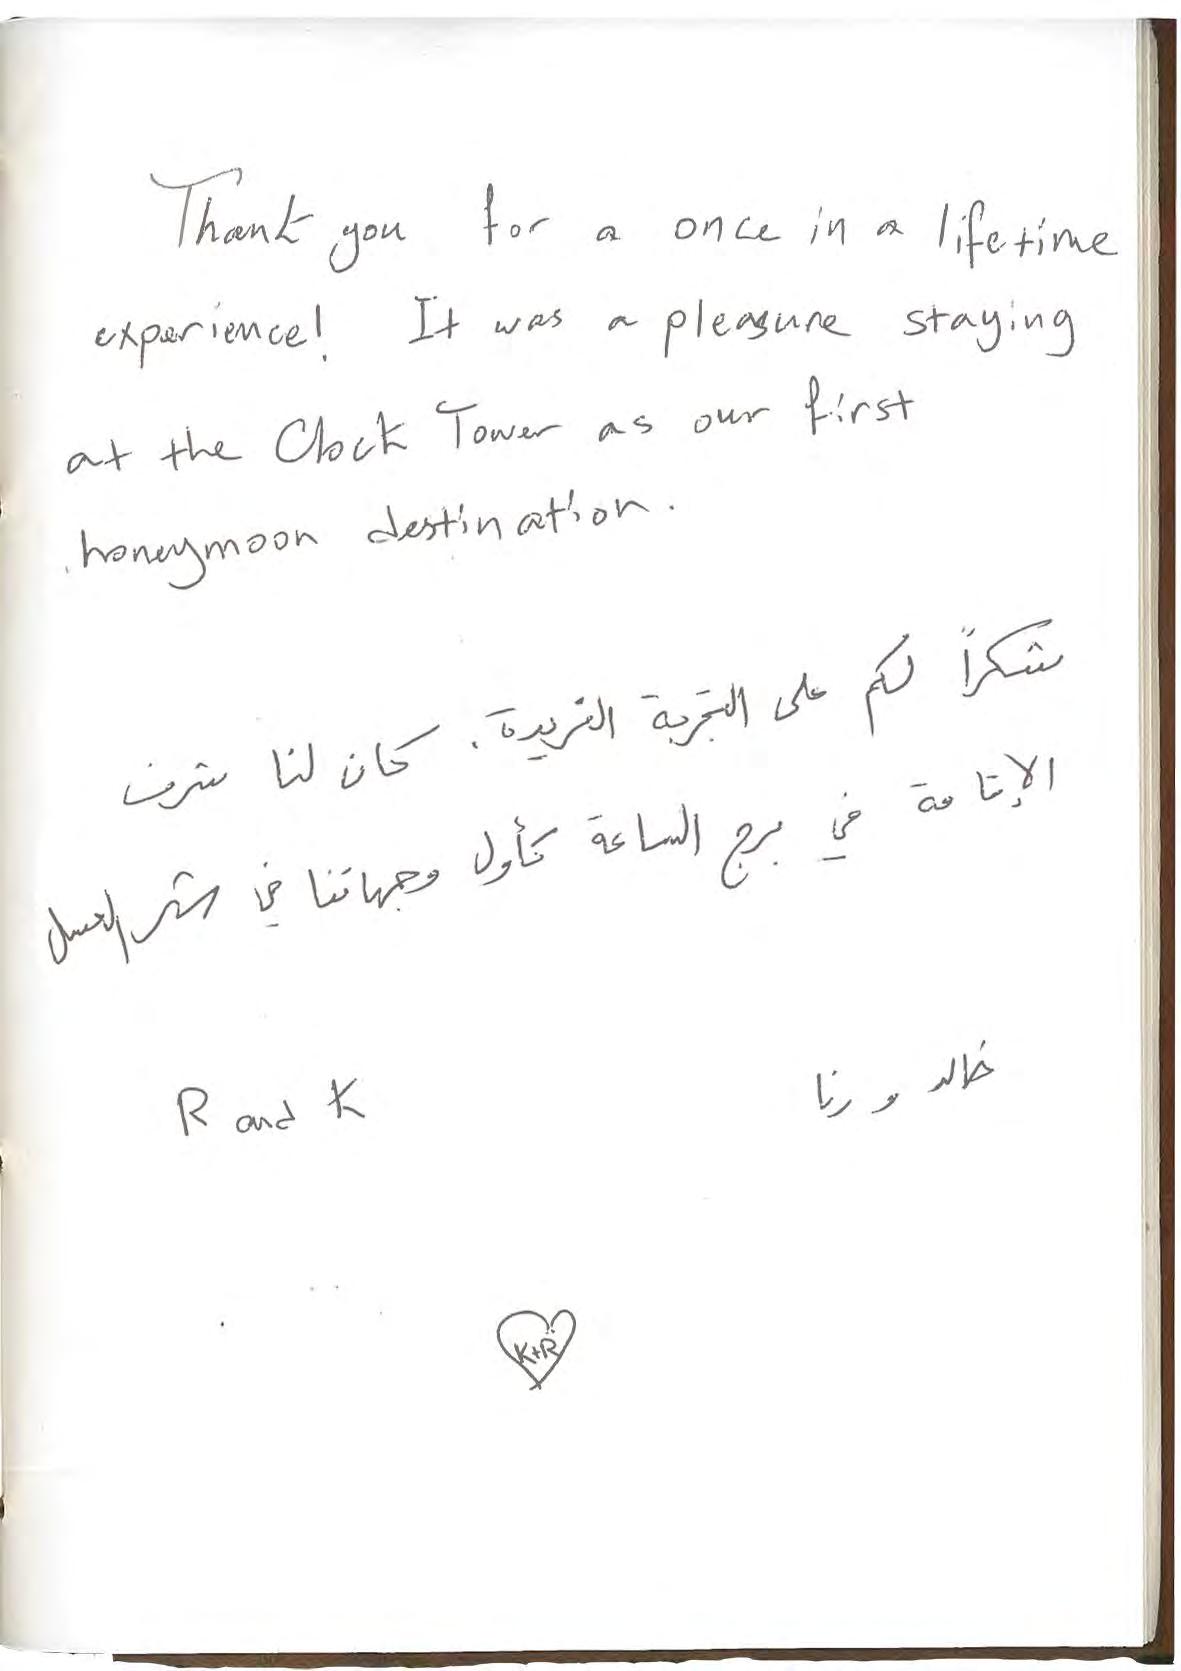 Thank you for a once in a lifetime
experience! It was a pleasure staying
at the Clock Tower as our first
honeymoon destination.
شكراً لكم على التجربة الفريدة. كان لنا شرف
الإقامة في برج الساعة كأول وجهاتنا في شهر العسل
خالد و رنا
R and K
K+R